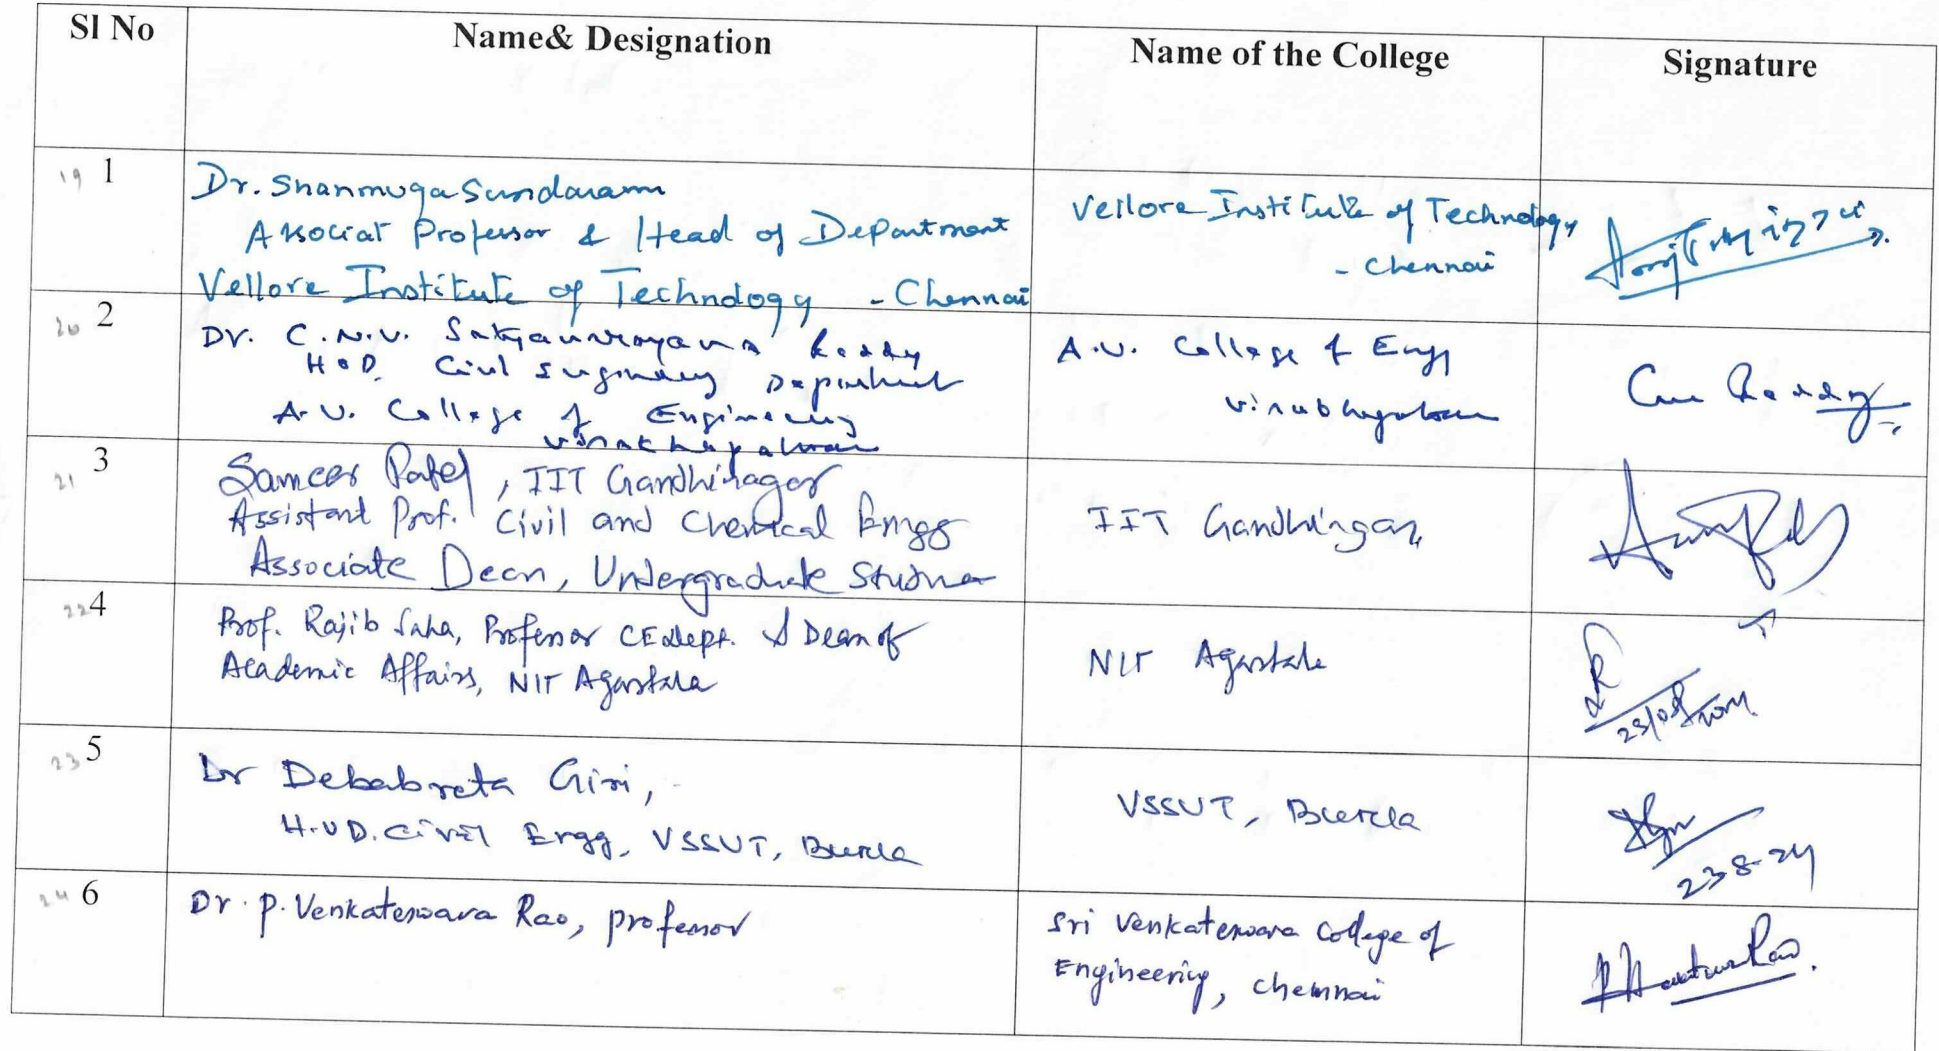 Sl No
Name& Designation
Name of the College
Signature
19 1
Dr. Shanmuga Sundaram
Associat Professor & Head of Department
Vellore Institute of Technology - Chennai
Vellore Institute of Technology
- Chennai
20 2
Dr. C.N.V. Satyanarayana Reddy
H.O.D. Civil Engineering Department
A.U. College of Engineering
Visakhapatnam
A.U. College of Engg
Visakhapatnam
Reddy
21 3
Sameer Patel, IIT Gandhinagar
Assistant Prof. Civil and Chemical Engg
Associate Dean, Undergraduate Studies
IIT Gandhinagar
22 4
Prof. Rajib Saha, Professor CE Dept. & Dean of
Academic Affairs, NIT Agartala
NIT Agartala
23/08/2024
23 5
Dr Debabrata Giri,
H.O.D. Civil Engg, VSSUT, Burla
VSSUT, Burla
23-8-24
24 6
Dr. P. Venkateswara Rao, professor
Sri Venkateswara College of
Engineering, Chennai
Rao.